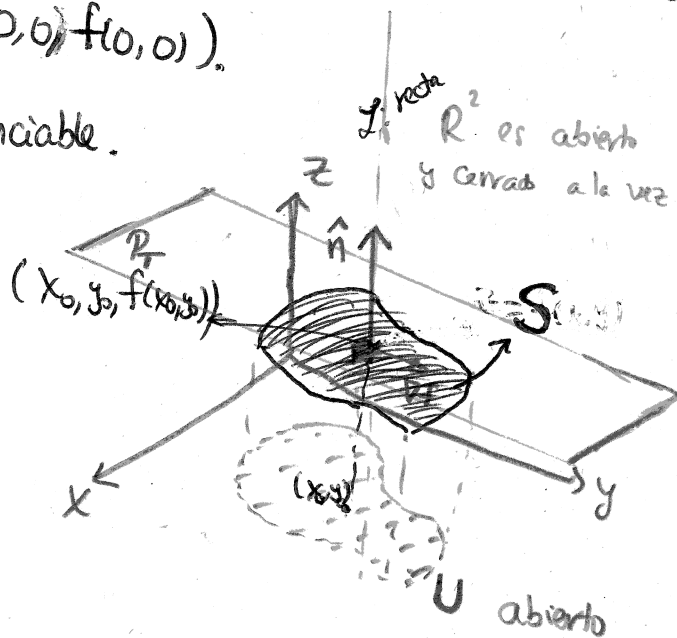 0,0, f(0,0)).
nciable.
L: recta
R² es abierto
y cerrado a la vez
z
n̂
P_T
(x₀, y₀, f(x₀,y₀))
S
(x₀,y₀)
x
y
U abierto